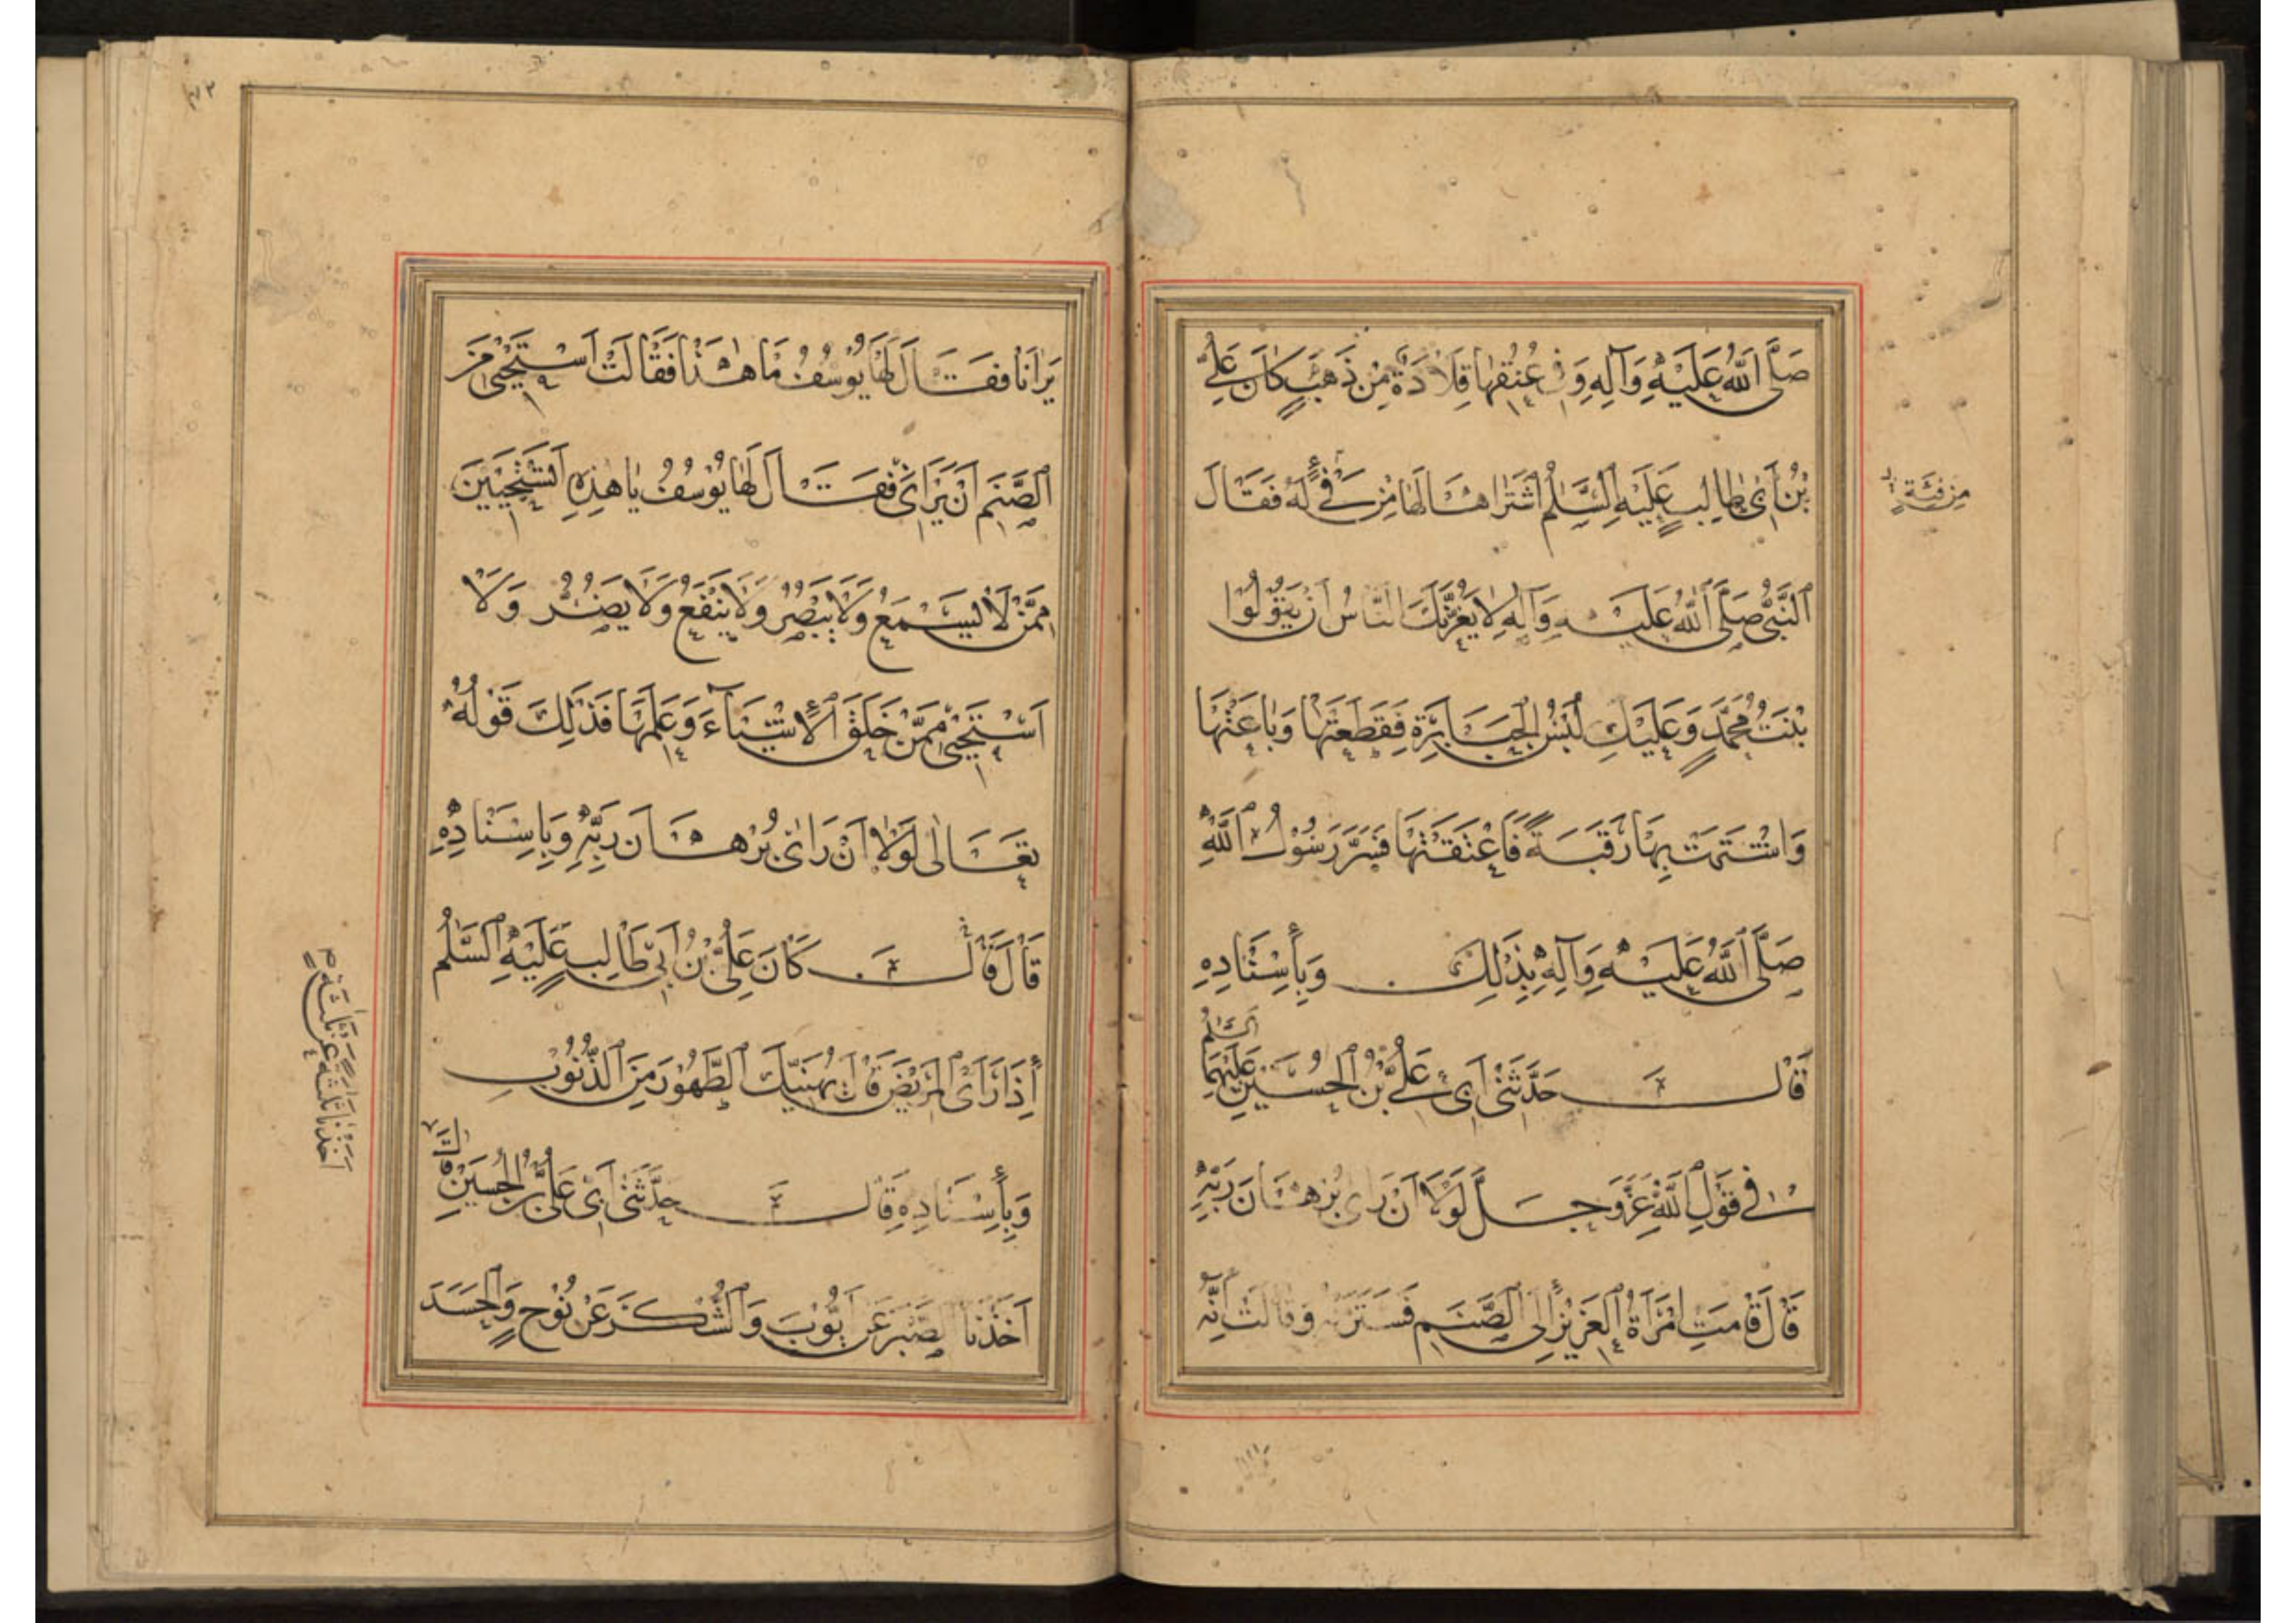 صَلَّى اللّٰهُ عَلَيْهِ وَآلِهِ وَفِي عُنُقِهَا قِلَادَةٌ مِنْ ذَهَبٍ كَانَ عَلِيُّ
بْنُ أَبِي طَالِبٍ عَلَيْهِ السَّلٰمُ اشْتَرَاهَا لَهَا مِنْ فَيْءٍ لَهُ فَقَالَ
النَّبِيُّ صَلَّى اللّٰهُ عَلَيْهِ وَآلِهِ لَا يَغُرَّنَّكِ النَّاسُ أَنْ يَقُولُوا
بِنْتُ مُحَمَّدٍ وَعَلَيْكِ لُبْسُ الْجَبَابِرَةِ فَقَطَعَتْهَا وَبَاعَتْهَا
وَاشْتَرَتْ بِهَا رَقَبَةً فَأَعْتَقَتْهَا فَسُرَّ رَسُولُ اللّٰهِ
صَلَّى اللّٰهُ عَلَيْهِ وَآلِهِ بِذٰلِكَ وَبِأَسْنَادِهِ
قَالَ حَدَّثَنِي أَبِي عَلِيُّ بْنُ الْحُسَيْنِ عَلَيْهِمَا السَّلٰمُ
فِي قَوْلِ اللّٰهِ عَزَّ وَجَلَّ لَوْلَا أَنْ رَاٰى بُرْهَانَ رَبِّهِ
قَالَ قَامَتِ امْرَأَةُ الْعَزِيزِ إِلَى الصَّنَمِ فَسَتَرَتْهُ وَقَالَتْ إِنَّهُ
مِنْ فِئَةٍ
يَرَانَا فَقَالَ لَهَا يُوسُفُ مَا هٰذَا فَقَالَتْ اَسْتَحْيِي مِنَ
الصَّنَمِ أَنْ يَرَانِي فَقَالَ لَهَا يُوسُفُ يَا هٰذِهِ اَتَسْتَحْيِينَ
مِمَّنْ لَا يَسْمَعُ وَلَا يُبْصِرُ وَلَا يَنْفَعُ وَلَا يَضُرُّ وَلَا
اَسْتَحْيِي مِمَّنْ خَلَقَ الْأَشْيَاءَ وَعَلِمَهَا فَذٰلِكَ قَوْلُهُ
تَعَالٰى لَوْلَا أَنْ رَاٰى بُرْهَانَ رَبِّهِ وَبِاِسْنَادِهِ
قَالَ قَالَ كَانَ عَلِيُّ بْنُ أَبِي طَالِبٍ عَلَيْهِ السَّلٰمُ
إِذَا رَأَى الْمَرِيضَ قَالَ يُهَنِّيكَ الطَّهُورُ مِنَ الذُّنُوبِ
وَبِأَسْنَادِهِ قَالَ حَدَّثَنِي أَبِي عَلِيُّ بْنُ الْحُسَيْنِ قَالَ
أَخَذْنَا الصَّبْرَ عَنْ أَيُّوبَ وَالشُّكْرَ عَنْ نُوحٍ وَالْحَسَدَ
أَخَذْنَا ثَلٰثَةً عَنْ ثَلٰثَةٍ